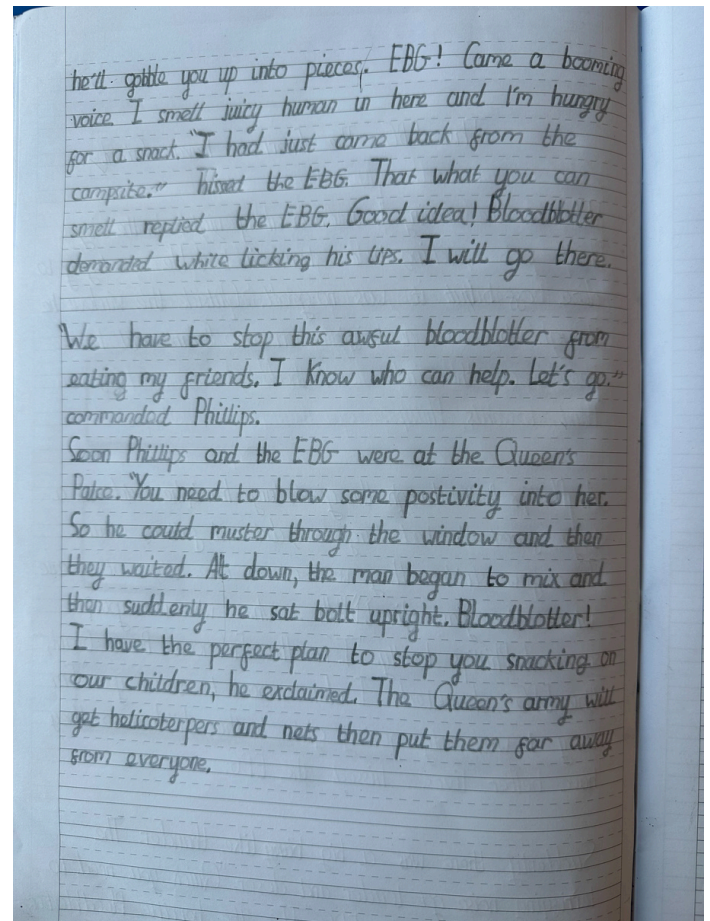 he'll gobble you up into pieces. EBG! Came a booming
voice I smell juicy human in here and I'm hungry
for a snack. "I had just come back from the
campsite." hissed the EBG. That what you can
smell replied the EBG. Good idea! Bloodblotter
demanded while licking his lips. I will go there.
"We have to stop this awful bloodblotter from
eating my friends. I know who can help. Let's go."
commanded Phillips.
Soon Phillips and the EBG were at the Queen's
Palce. "You need to blow some postivity into her.
So he could muster through the window and then
they waited. At down, the man began to mix and
then suddenly he sat bolt upright. Bloodblotter!
I have the perfect plan to stop you snacking on
our children, he exclaimed. The Queen's army will
get helicoterpers and nets then put them far away
from everyone.